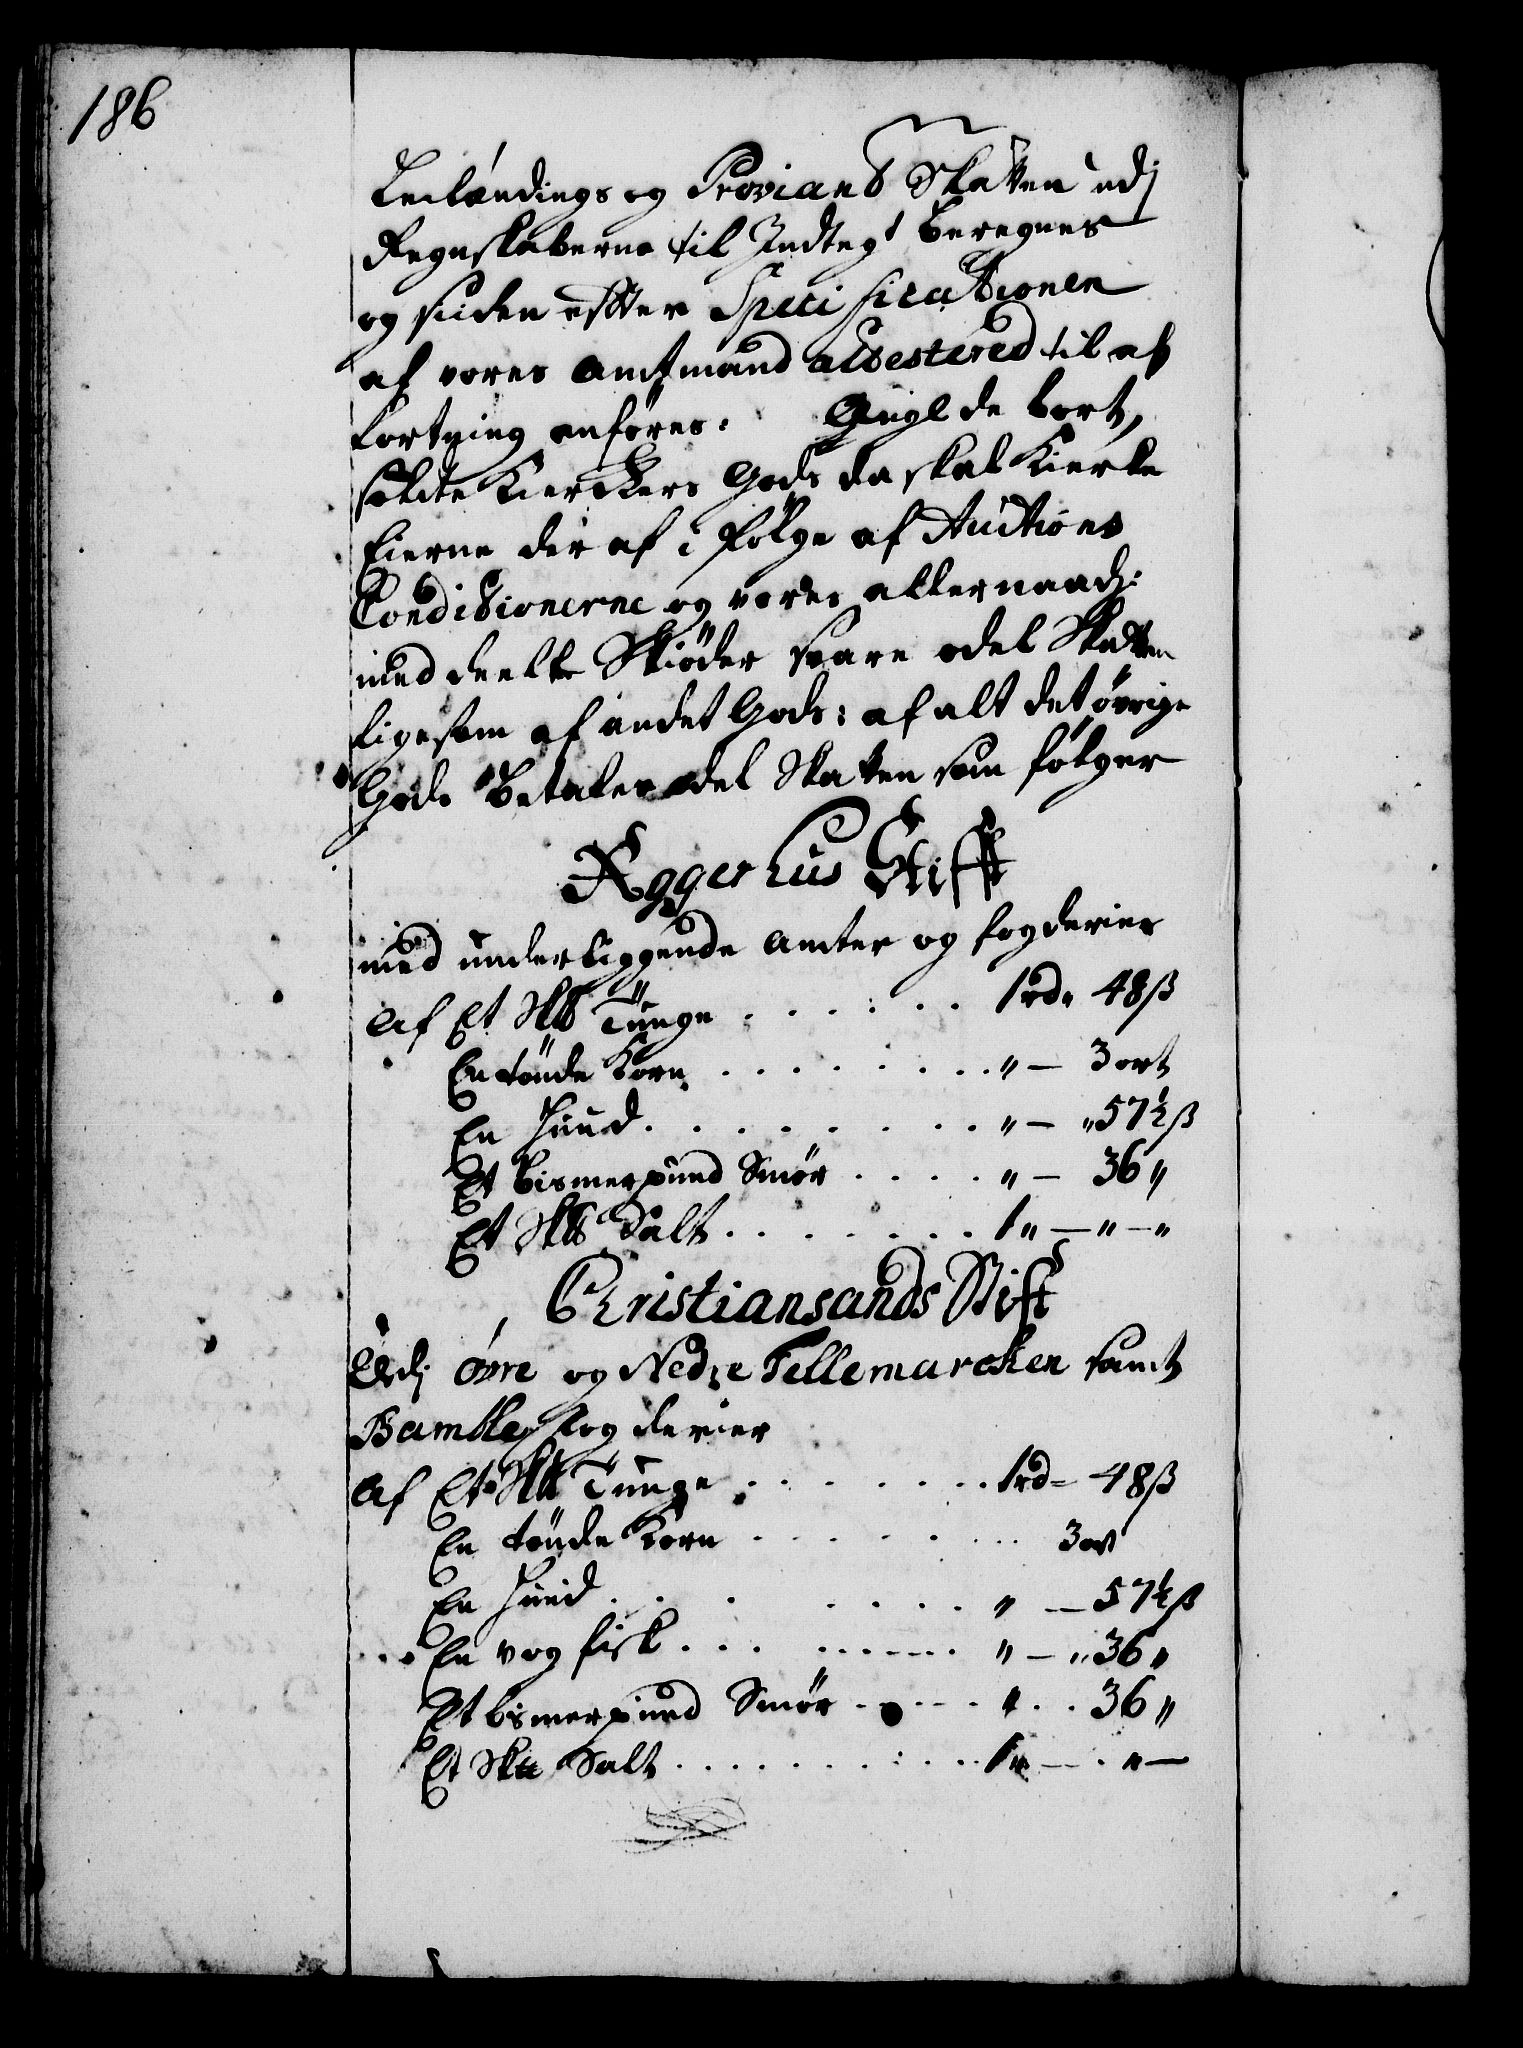 186
Leilændings og Proviant Skatten udj
Regnskaberne til Indtegt beregnes
og siden effter Specificationen
af vores Amtmand attestered til af
kortning anføres. Angl de bort,
soldte Kierckers Gods da skal Kierke
Eierne der af i følge af Auctions
Conditionerne og vores allernaadj:
meddeelte Skiøder svare odel Skatten
ligesom af andet Gods: af alt det øvrige
Gods betales odel Skatten som følger
Aggerhus Stifft
med underliggende Amter og fogderier
Af Et Sk℔ Tunge . . . . . . 1 rd. 48 ß
En tønde Korn . . . . . . . . " — 3 ort
En Huud . . . . . . . . " — " 57½ ß
Et bismerpund Smør . . . . " — 36 "
Et Sk℔ Salt . . . . . . . 1 " — " — "
Christiansands Stift
Udj øvre og Nedre Tellemarcken samt
Bamble fogderier
Af Et Sk℔ Tunge . . . . . . 1 rd - 48 ß
En tønde Korn . . . . . . 3 ort
En Huud . . . . . . . " — 57½ ß
En vog fisk . . . . . . . . " — " 36 "
Et bismerpund Smør . . . . . " . . 36 "
Et Sk℔ Salt . . . . . . . . . 1 " — . " —